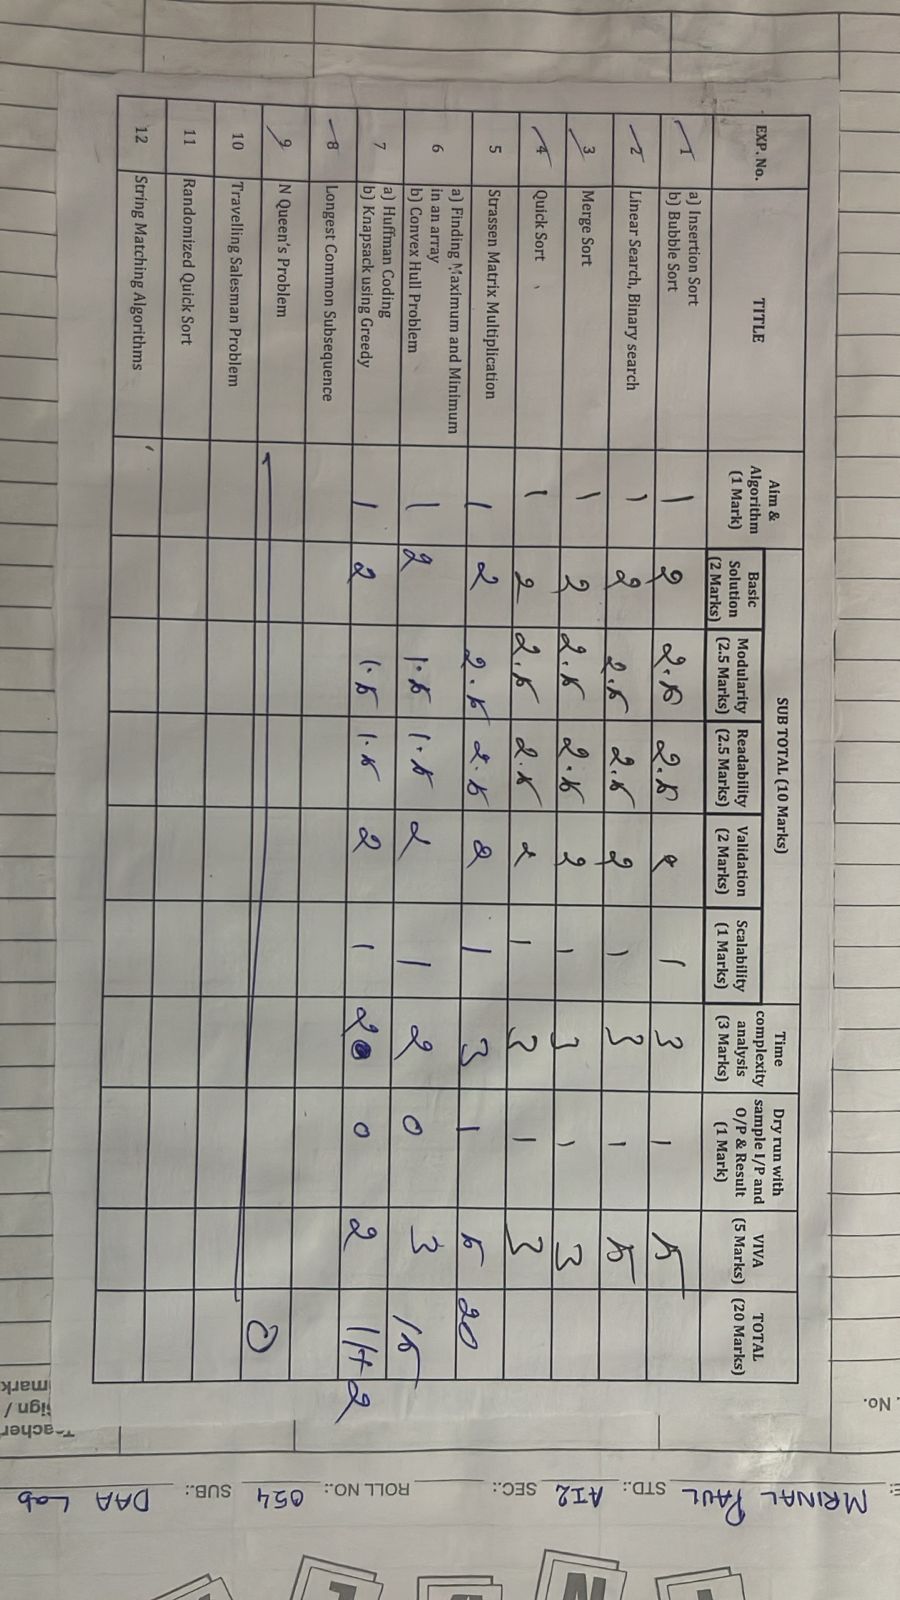 . No.
E: MRINAL PAUL STD.: AI2 SEC.: ROLL NO.: 054 SUB.: DAA Lab
EXP. No.
TITLE
Aim &
Algorithm
(1 Mark)
SUB TOTAL (10 Marks)
Basic
Solution
(2 Marks)
Modularity
(2.5 Marks)
Readability
(2.5 Marks)
Validation
(2 Marks)
Scalability
(1 Marks)
Time
complexity
analysis
(3 Marks)
Dry run with
sample I/P and
O/P & Result
(1 Mark)
VIVA
(5 Marks)
TOTAL
(20 Marks)
1 a) Insertion Sort
b) Bubble Sort
1 2 2.5 2.5 2 1 3 1 5
2 Linear Search, Binary search 1 2 2.5 2.5 2 1 3 1 5
3 Merge Sort 1 2 2.5 2.5 2 1 3 1 3
4 Quick Sort 1 2 2.5 2.5 2 1 3 1 3
5 Strassen Matrix Multiplication 1 2 2.5 2.5 2 1 3 1 5 20
6 a) Finding Maximum and Minimum
in an array
b) Convex Hull Problem
1 2 1.5 1.5 2 1 2 0 3 15
7 a) Huffman Coding
b) Knapsack using Greedy
1 2 1.5 1.5 2 1 2 0 2
8 Longest Common Subsequence
9 N Queen's Problem 0
10 Travelling Salesman Problem
11 Randomized Quick Sort
12 String Matching Algorithms